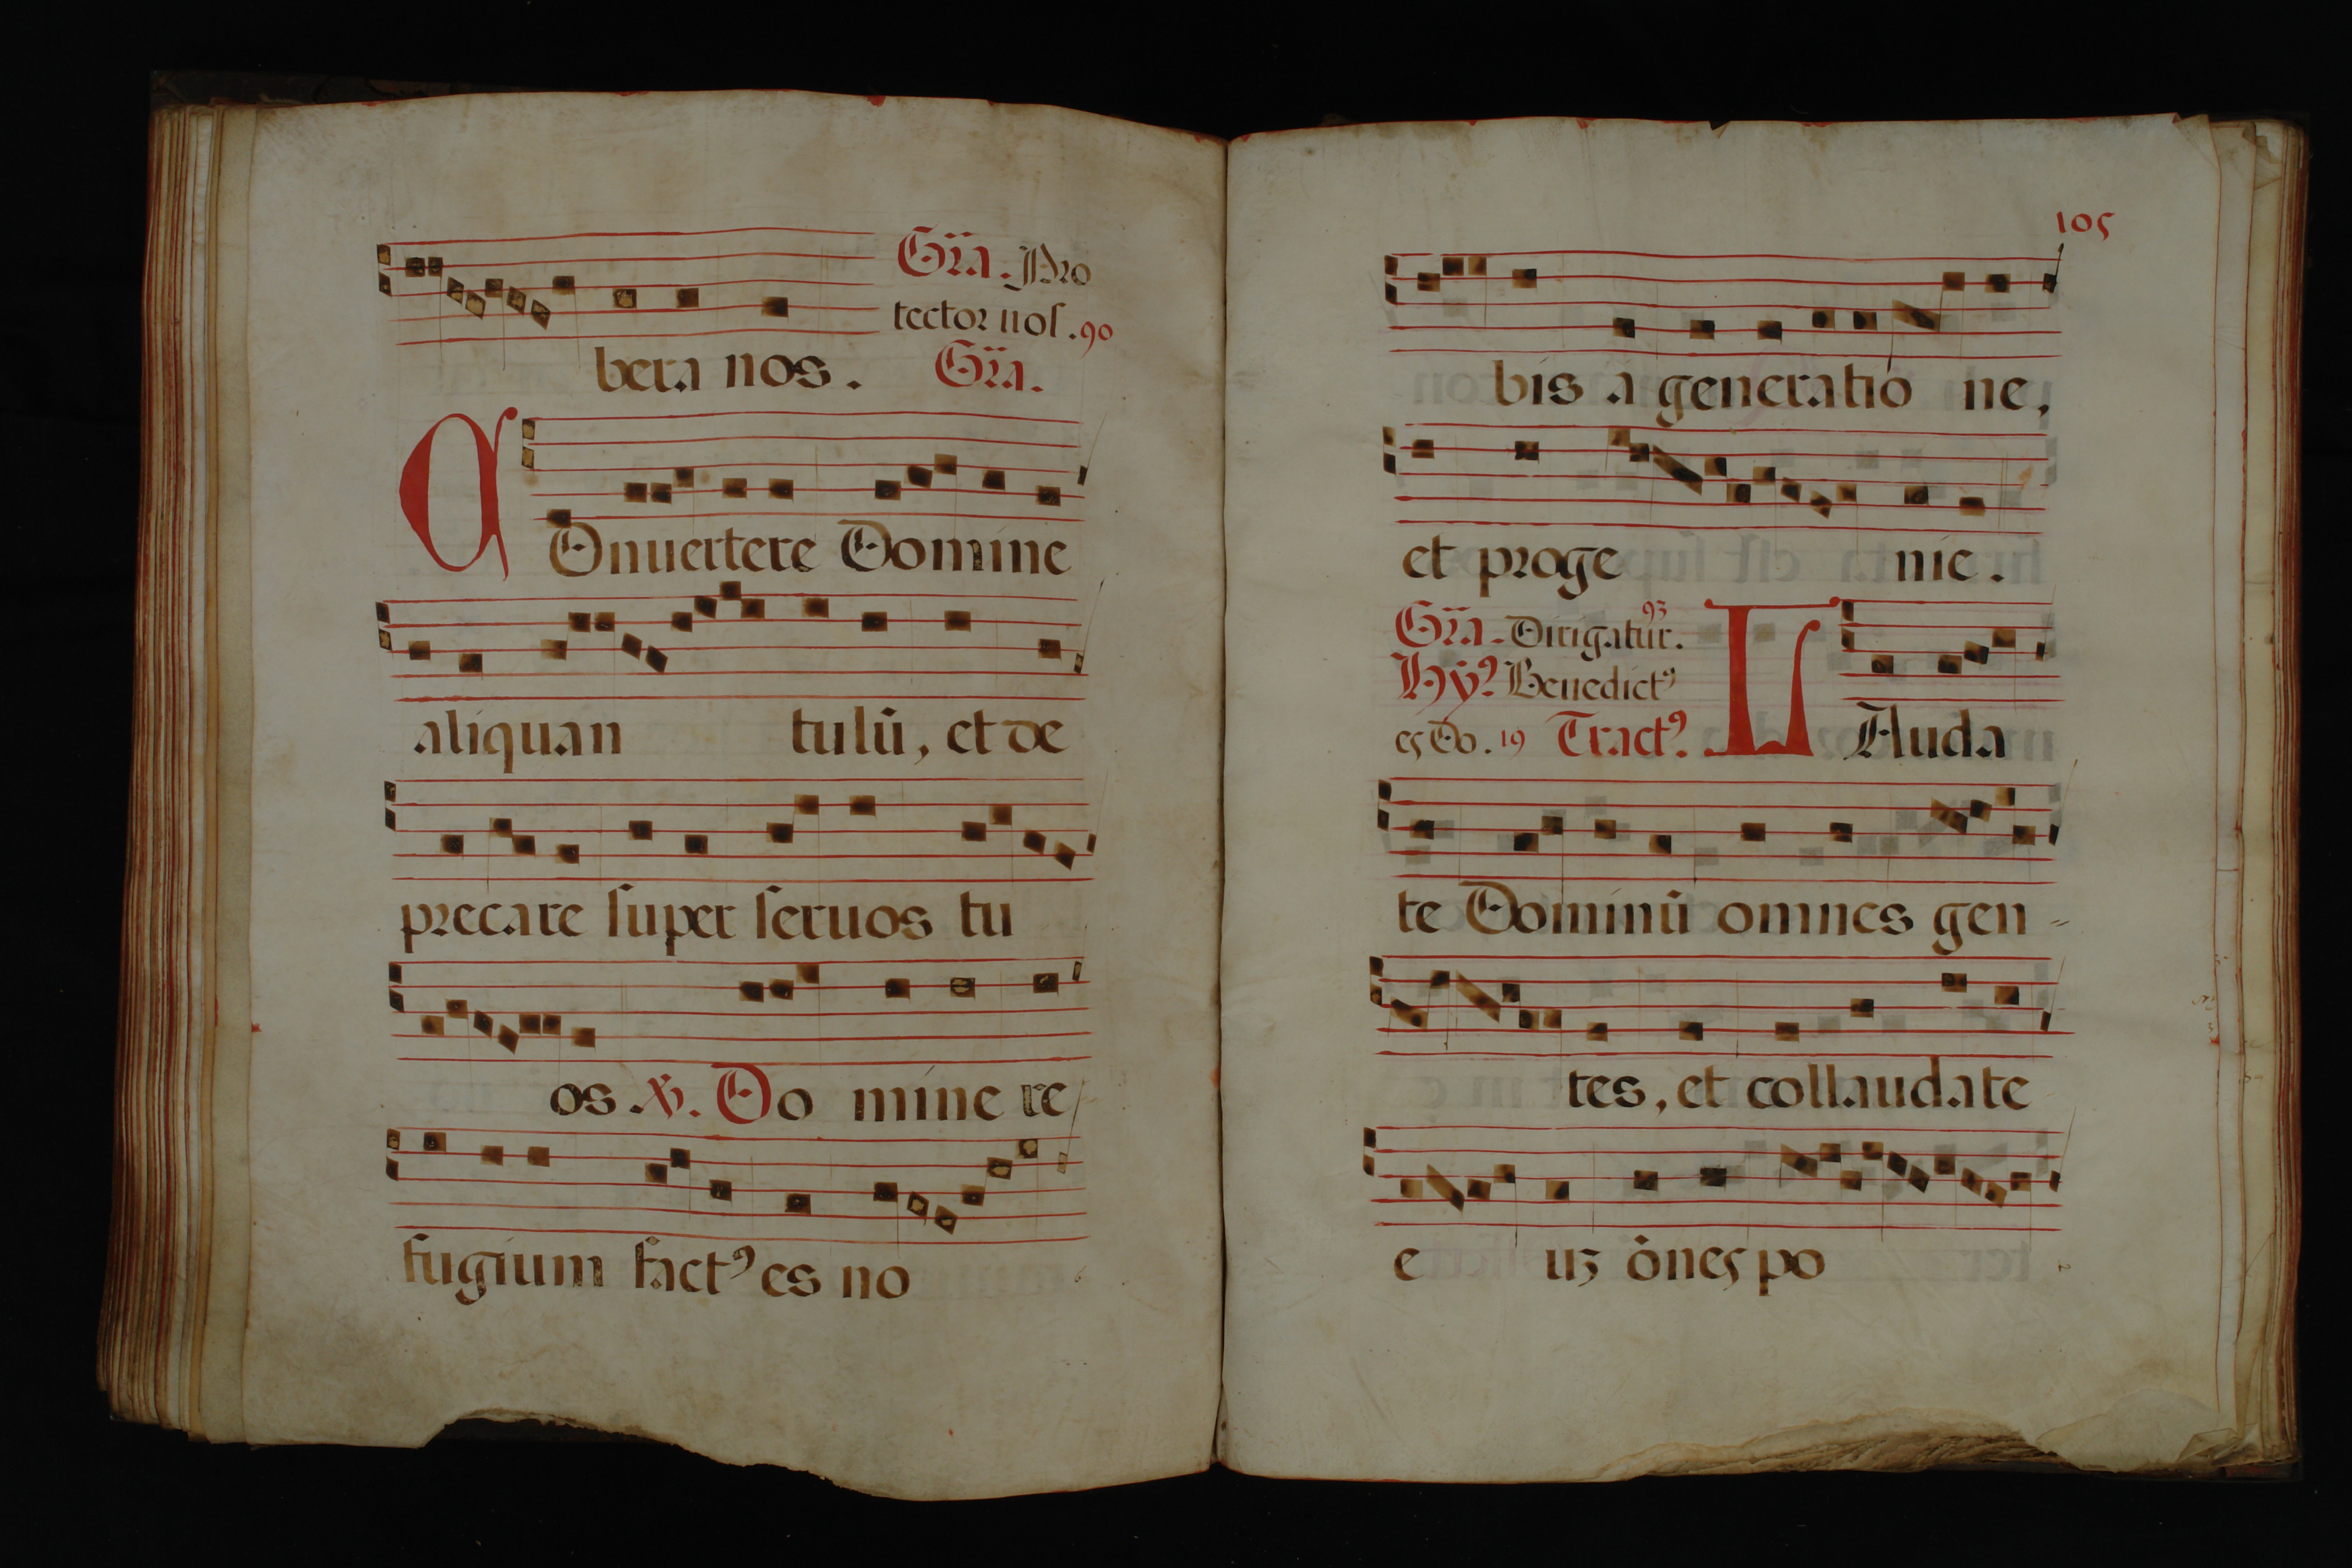 Gr̃a. Pro
tector nos. 90
bera nos. Gr̃a.
COnuertere Domine
aliquan tulũ, et de
precare super seruos tu
os ℣. Do mine re
fugium factꝰ es no
105
bis a generatio ne,
et proge nie.
Gr̃a. Dirigatur. 93
Hỹꝰ Benedictꝰ
es Do. 19 Tractꝰ. LAuda
te Dominũ omnes gen=
tes, et collaudate
e uʒ õnes po